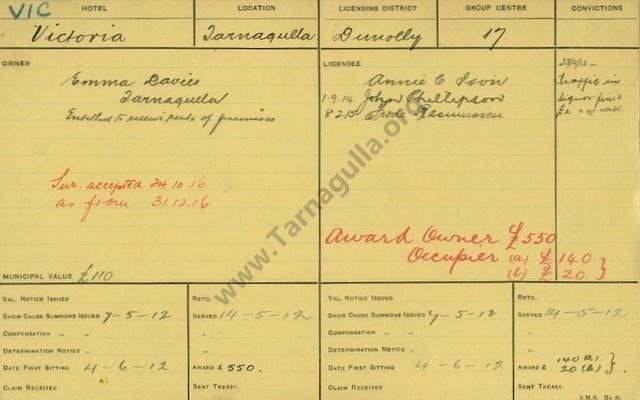 VIC HOTEL LOCATION LICENSING DISTRICT GROUP CENTRE CONVICTIONS
Victoria Tarnagulla Dunolly 17
OWNER
Emma Davies
Tarnagulla
Entitled to receive rents of premises
LICENSEE
Annie E
1-9-14 John Phillipson
8 2.15 Rasmussen
Traffic in
liquor fined
£2
Sur. accepted 24.10.16
as from 31.12.16
Award Owner £550
Occupier (a) £140
(b) £20
MUNICIPAL VALUE £110
VAL. NOTICE ISSUED RETD.
SHOW CAUSE SUMMONS ISSUED 7-5-12 SERVED 14-5-12
COMPENSATION „ „ „
DETERMINATION NOTICE „ „
DATE FIRST SITTING 4-6-12 AWARD £ 550.
CLAIM RECEIVED SENT TREASY.
VAL. NOTICE ISSUED RETD.
SHOW CAUSE SUMMONS ISSUED 7-5-12 SERVED 14-5-12
COMPENSATION „ „ „
DETERMINATION NOTICE „ „
DATE FIRST SITTING 4-6-12 AWARD £ 140 (a)
20 (b)
CLAIM RECEIVED SENT TREASY.
www.Tarnagulla.org